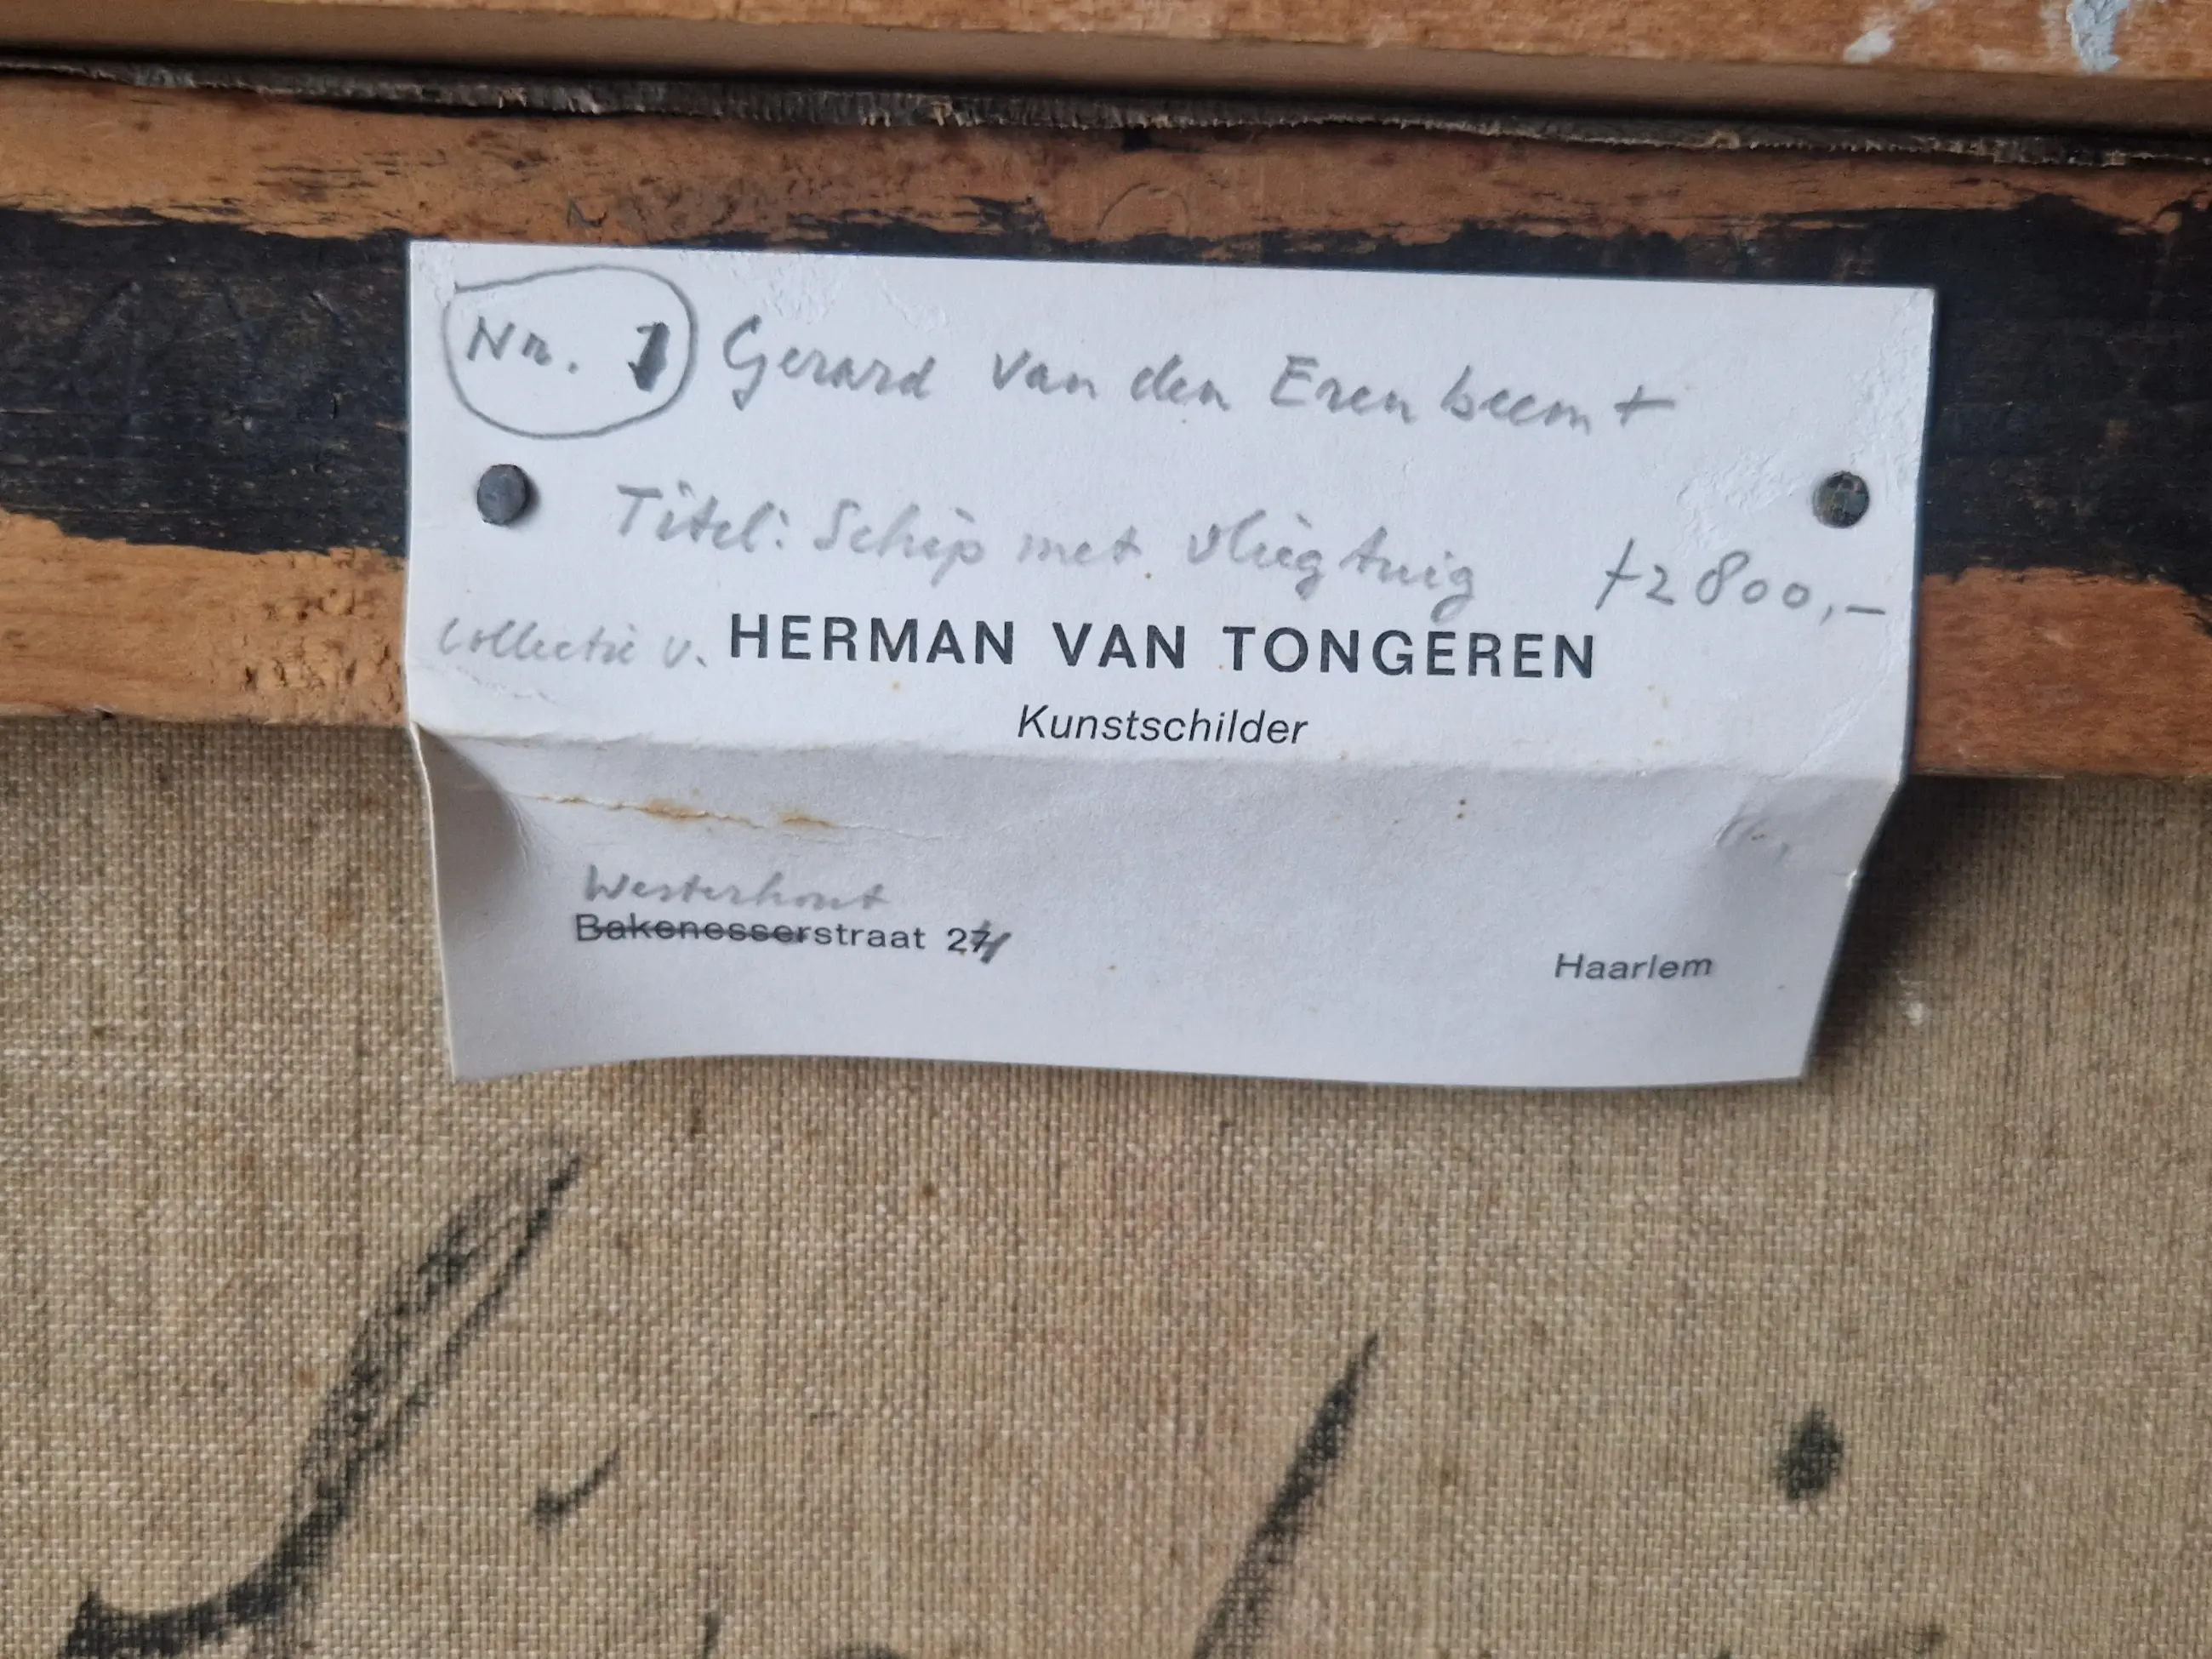 Nr. 1 Gerard van den Erenbeemt
Titel: Schip met vliegtuig f 2800,-
Collectie v. HERMAN VAN TONGEREN
Kunstschilder
Westerhout
Bakenesserstraat 21
Haarlem